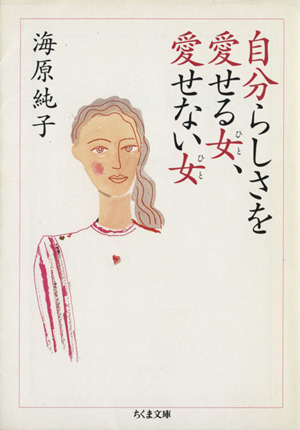 自分らしさを
愛せる女、
ひと
愛せない女
ひと
海原純子
ちくま文庫